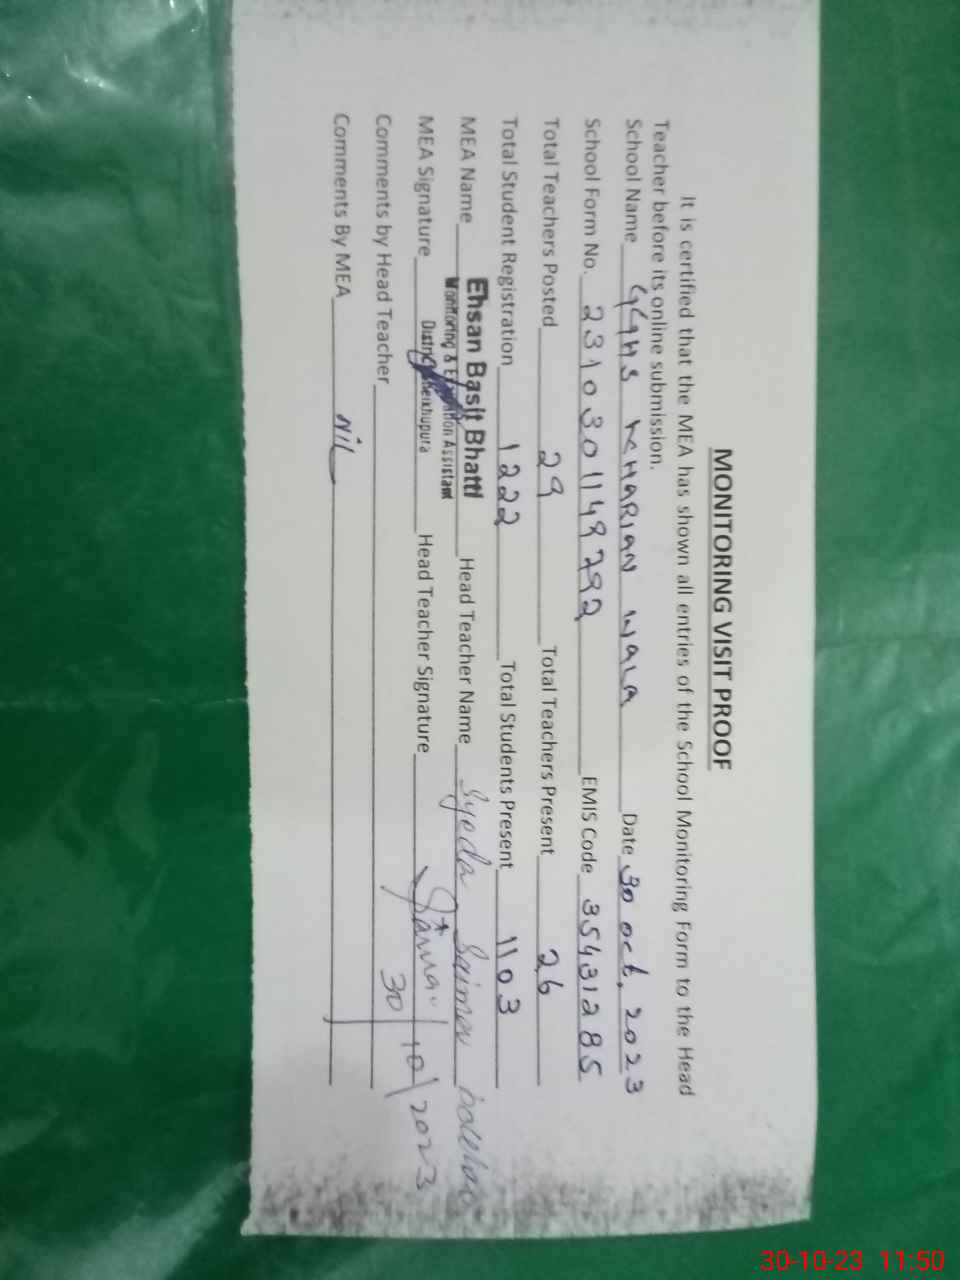 MONITORING VISIT PROOF
It is certified that the MEA has shown all entries of the School Monitoring Form to the Head
Teacher before its online submission.
School Name GGHS KHARIAN WALA Date 30 oct. 2023
School Form No. 2310301148792 EMIS Code 35431285
Total Teachers Posted 29 Total Teachers Present 26
Total Student Registration 1222 Total Students Present 1103
MEA Name Ehsan Basit Bhatti Head Teacher Name Syeda Saima
Monitoring & Assistant
MEA Signature District Sheikhupura Head Teacher Signature Saima
Comments by Head Teacher 30/10/2023
Comments By MEA NIL
30-10-23 11:50